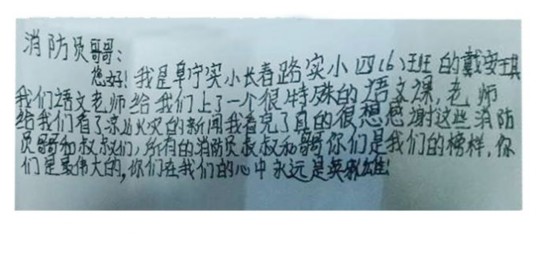 消防员哥哥:
您好!我是阜宁实小长春路实小四(6)班的戴安琪
我们语文老师给我们上了一个很特殊的语文课,老师
给我们看了凉山火灾的新闻我看完了真的很想感谢这些消防
员哥哥和叔叔们,所有的消防员叔叔和哥哥你们是我们的榜样,你
们是最伟大的,你们在我们的心中永远是英雄!